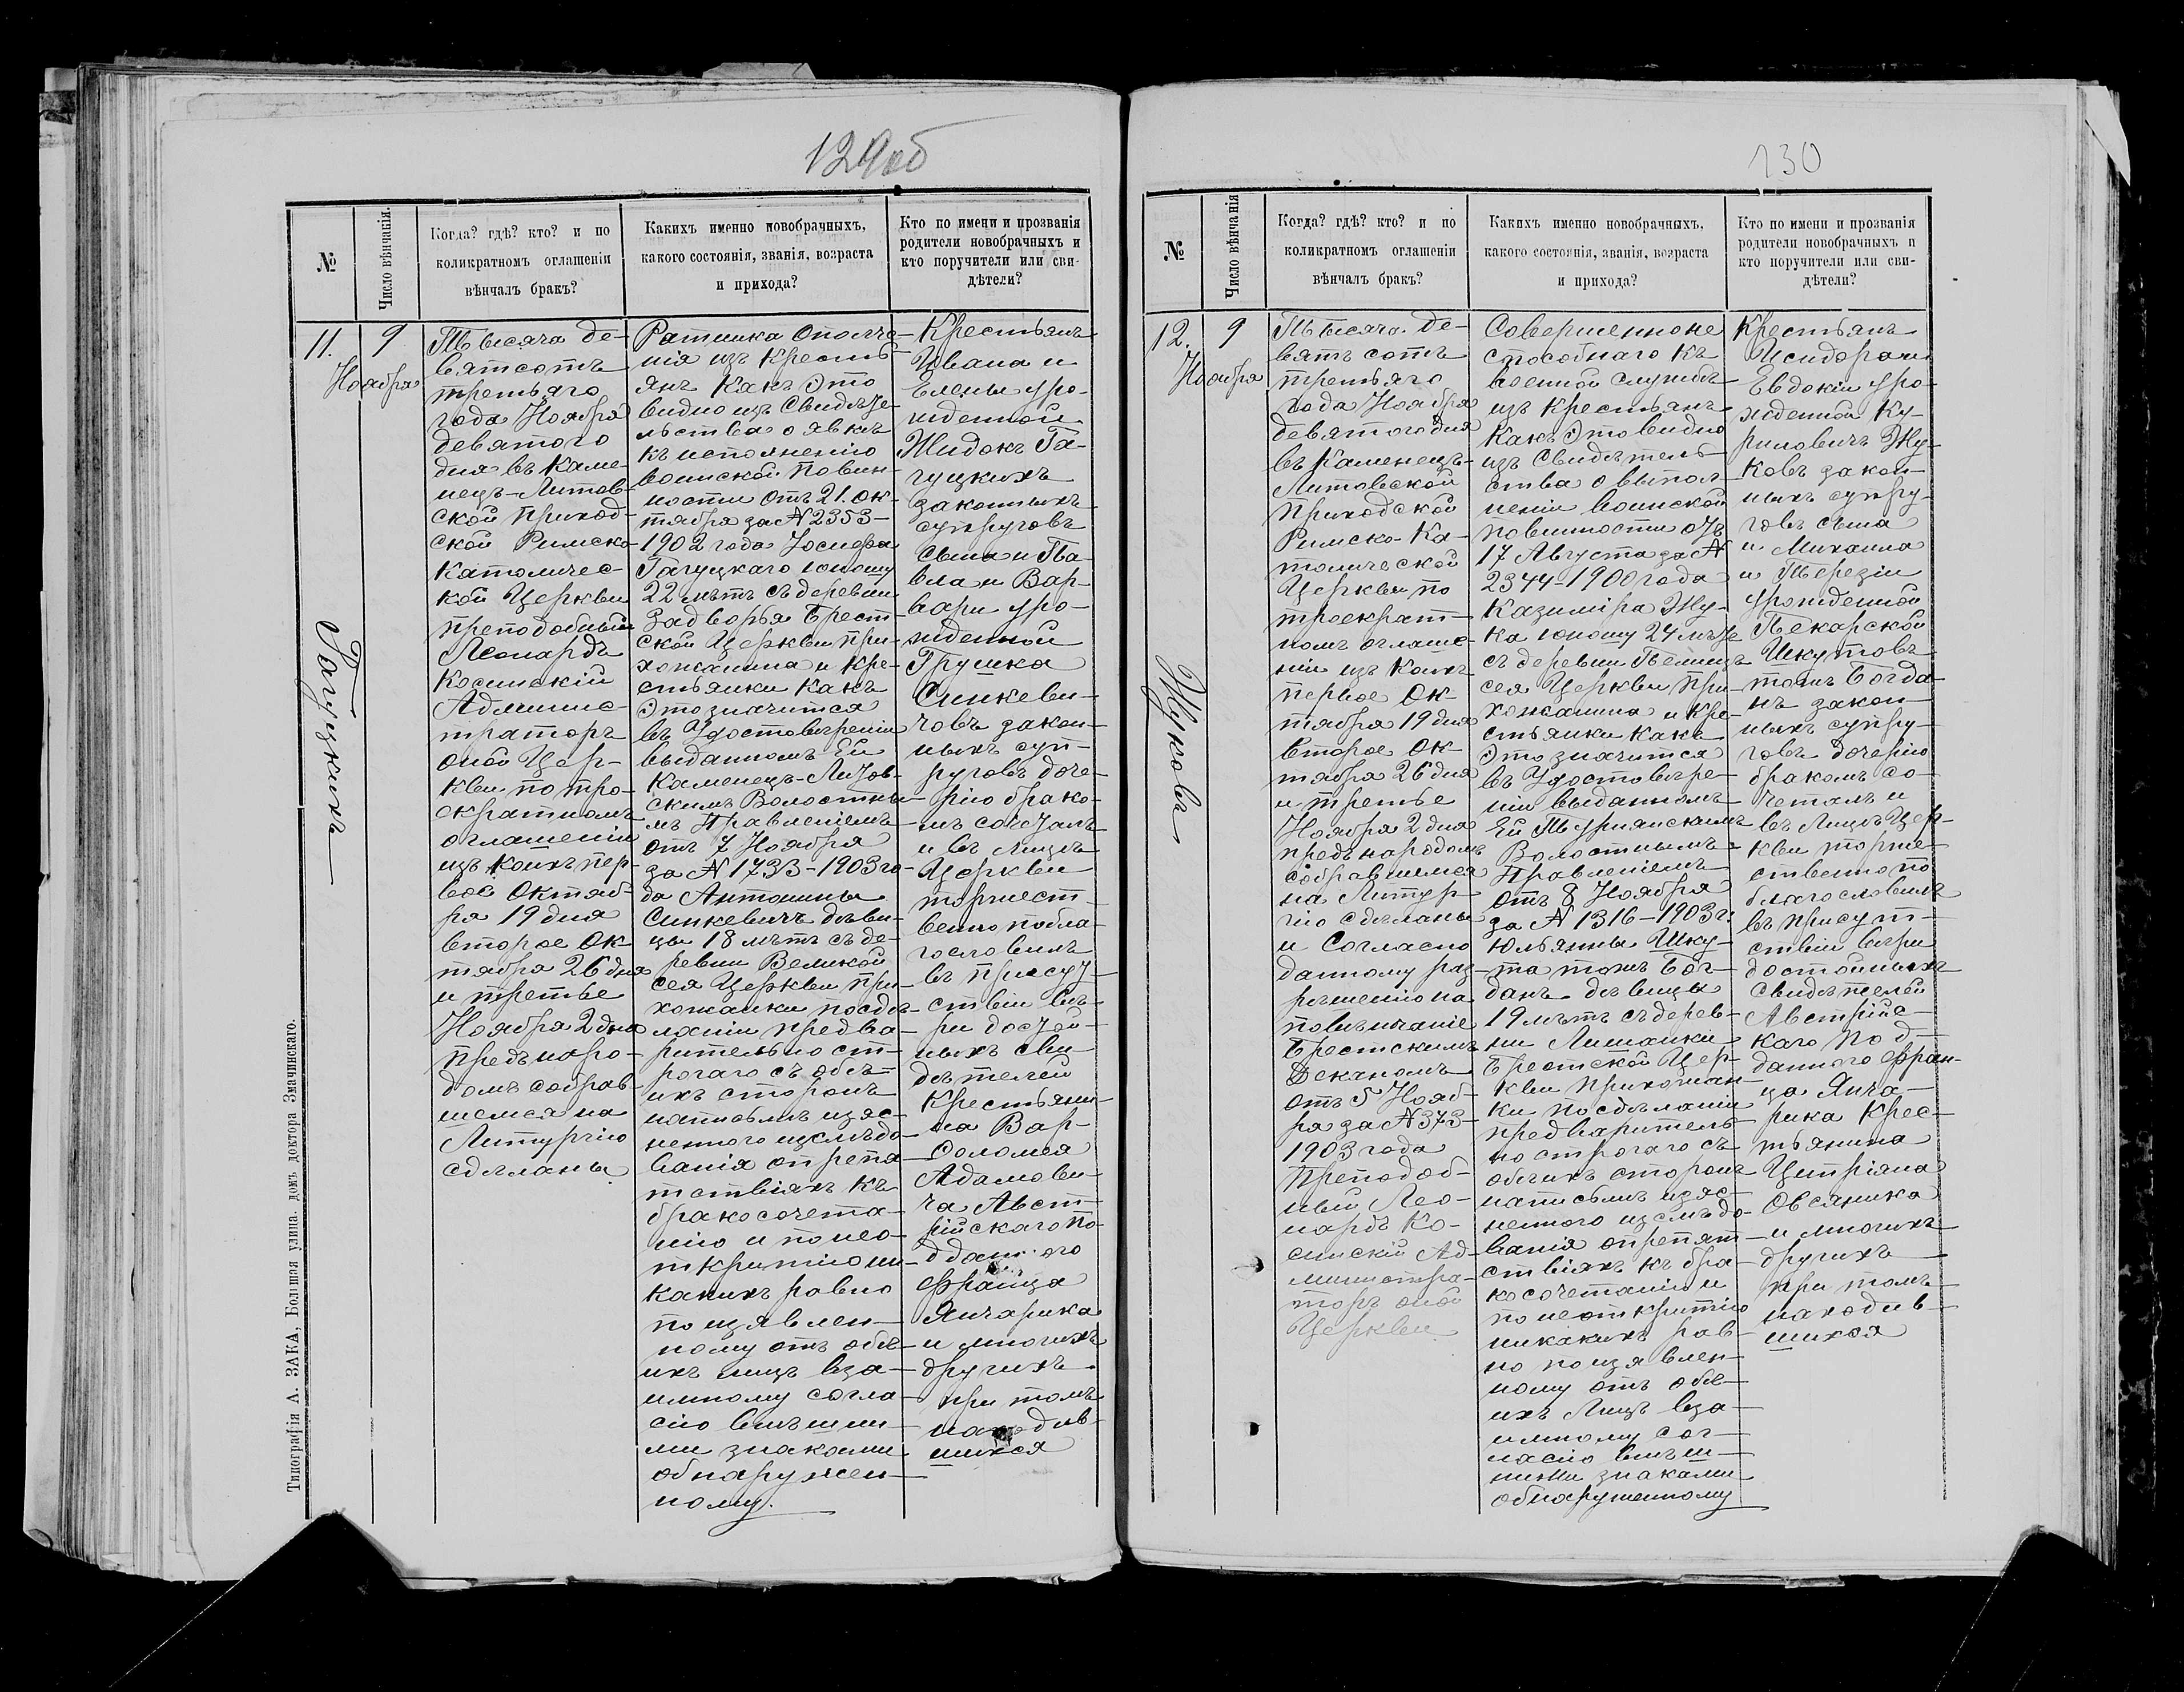 129об
№
Число вѣнчанія.
Когда? гдѣ? кто? и по
коликратномъ оглашеніи
вѣнчалъ бракъ?
Какихъ именно новобрачныхъ,
какого состоянія, званія, возраста
и прихода?
Кто по имени и прозванія
родители новобрачныхъ и
кто поручители или сви-
дѣтели?
11.
9
Ноября
Гагуцкихъ
Тысяча де-
вятсотъ
третьяго
года Ноября
девятого
дня въ Каме-
нецъ-Литов-
ской приход-
ской Римско-
католичес-
кой Церкви
преподобный
Леонардъ
Косинскій
Админис-
траторъ
оной Цер-
кви по тро-
екратномъ
оглашеніи
изъ коихъ пер-
вое Октяб-
ря 19 дня
второе Ок-
тября 26 дня
и третье
Ноября 2 дня
предъ наро-
домъ собрав-
шемся на
Литургію
сдѣланы
Ратника Ополче-
нія изъ кресть-
янъ какъ это
видно изъ Свидѣте-
льства о явкѣ
къ исполненію
воинской повин-
ности отъ 21. ок-
тября за № 2353-
1902 года Іосифа
Гагуцкаго юношу
22 лѣтъ съ деревни
Задворья Брест-
ской Церкви при-
хожанина и кре-
стьянки какъ
это значится
въ Удостовѣреніи
выданномъ Ей
Каменецъ-Литов-
скимъ Волостны-
мъ Правленіемъ
отъ 7 Ноября
за № 1733-1903 го-
да Антонины
Синкевичъ дѣви-
цы 18 лѣтъ съ де-
ревни Великой
сея Церкви при-
хожанки посдѣ-
ланіи предва-
рительно ст-
рогаго съ обѣ-
ихъ сторонъ
написьмѣ изяс-
неннаго изслѣдо-
ванія опрепя-
тствіяхъ къ
бракосочета-
нію и понео-
ткрытію ни-
какихъ равно
поизявлен-
ному отъ обѣ-
ихъ лицъ вза-
имному согла-
сію внѣшни-
ми знаками
обнаружен-
ному.
Крестьянъ
Ивана и
Елены уро-
жденной
Жидокъ Га-
гуцкихъ
законныхъ
супруговъ
сына и Па-
вла и Вар-
вары уро-
жденной
Грушка
Синкеви-
човъ закон-
ныхъ суп-
руговъ доче-
рію брако-
мъ сочеталъ
и въ лицѣ
Церкви
торжест-
венно побла-
гословилъ
въ присут-
ствіи вѣ-
ри достой-
ныхъ сви-
дѣтелей
Крестьяни-
на Вар-
фоломея
Адамови-
ча Авст-
рійскаго по-
дданного
Франца
Янчарика
и многихъ
другихъ
при томъ
находив-
шихся
Типографія А. ЗАКА, Большая улица, домъ доктора Змачинскаго.
130
№
Число вѣнчанія
Когда? гдѣ? кто? и по
коликратномъ оглашеніи
вѣнчалъ бракъ?
Какихъ именно новобрачныхъ,
какого состоянія, званія, возраста
и прихода?
Кто по имени и прозванія
родители новобрачныхъ и
кто поручители или сви-
дѣтели?
12.
9
Ноября
Жуковъ
Тысяча де-
вятъ сотъ
третьяго
года Ноября
девятого дня
въ Каменецъ-
Литовской
приходской
Римско-Ка-
толической
Церкви по
троекрат-
номъ оглаше-
ніи изъ коихъ
первое Ок-
тября 19 дня
второе Ок-
тября 26 дня
и третье
Ноября 2 дня
предъ народомъ
собравшемся
на Литур-
гію сдѣланы
и согласно
данному раз-
рѣшенію на
повѣнчаніе
Брестскимъ
Деканомъ
отъ 5 Нояб-
ря за № 373-
1903 года
Преподоб-
ный Лео-
нардъ Ко-
синскій Ад-
министра-
торъ оной
Церкви
Совершенно не
способнаго къ
военной службѣ
изъ крестьянъ
какъ это видно
изъ Свидѣтель-
ства о выпол-
неніи воинской
повинности отъ
17 Августа за №
2344-1900 года
Казиміра Жу-
ка юношу 24 лѣтъ
съ деревни Пелищъ
сея Церкви при-
хожанина и кре-
стьянки какъ
это значится
въ Удостовѣре-
ніи выданномъ
Ей Турнянскимъ
Волостнымъ
Правленіемъ
отъ 8 Ноября
за № 1316-1903 г.
Юльянны Шку-
та тожъ Бог-
данъ дѣвицы
19 лѣтъ съ дерев-
ни Лишанки
Брестской Цер-
кви прихожан-
ки посдѣланіи
предваритель-
но строгаго съ
обѣихъ сторонъ
написьмѣ изяс-
неннаго изслѣдо-
ванія опрепят-
ствіяхъ къ бра-
косочетанію и
понеоткрытію
никакихъ рав-
но поизявлен-
ному отъ обѣ-
ихъ Лицъ вза-
имному сог-
ласію внѣш-
ними знаками
обнаруженному
Крестьянъ
Исидора и
Евдокіи уро-
жденной Ку-
риловичъ Жу-
ковъ закон-
ныхъ супру-
говъ сына
и Михаила
и Терезіи
урожденной
Пекарской
Шкутовъ
тожъ Богда-
нъ закон-
ныхъ супру-
говъ дочерію
бракомъ со-
четалъ и
въ Лицѣ Цер-
кви торже-
ственно по
благословилъ
въ присут-
ствіи вѣри
достойныхъ
свидѣтелей
Австрійс-
каго под-
данного Фран-
ца Янча-
рика Крес-
тьянина
Ципріяна
Овсяника
и многихъ
другихъ
при томъ
находив-
шихся